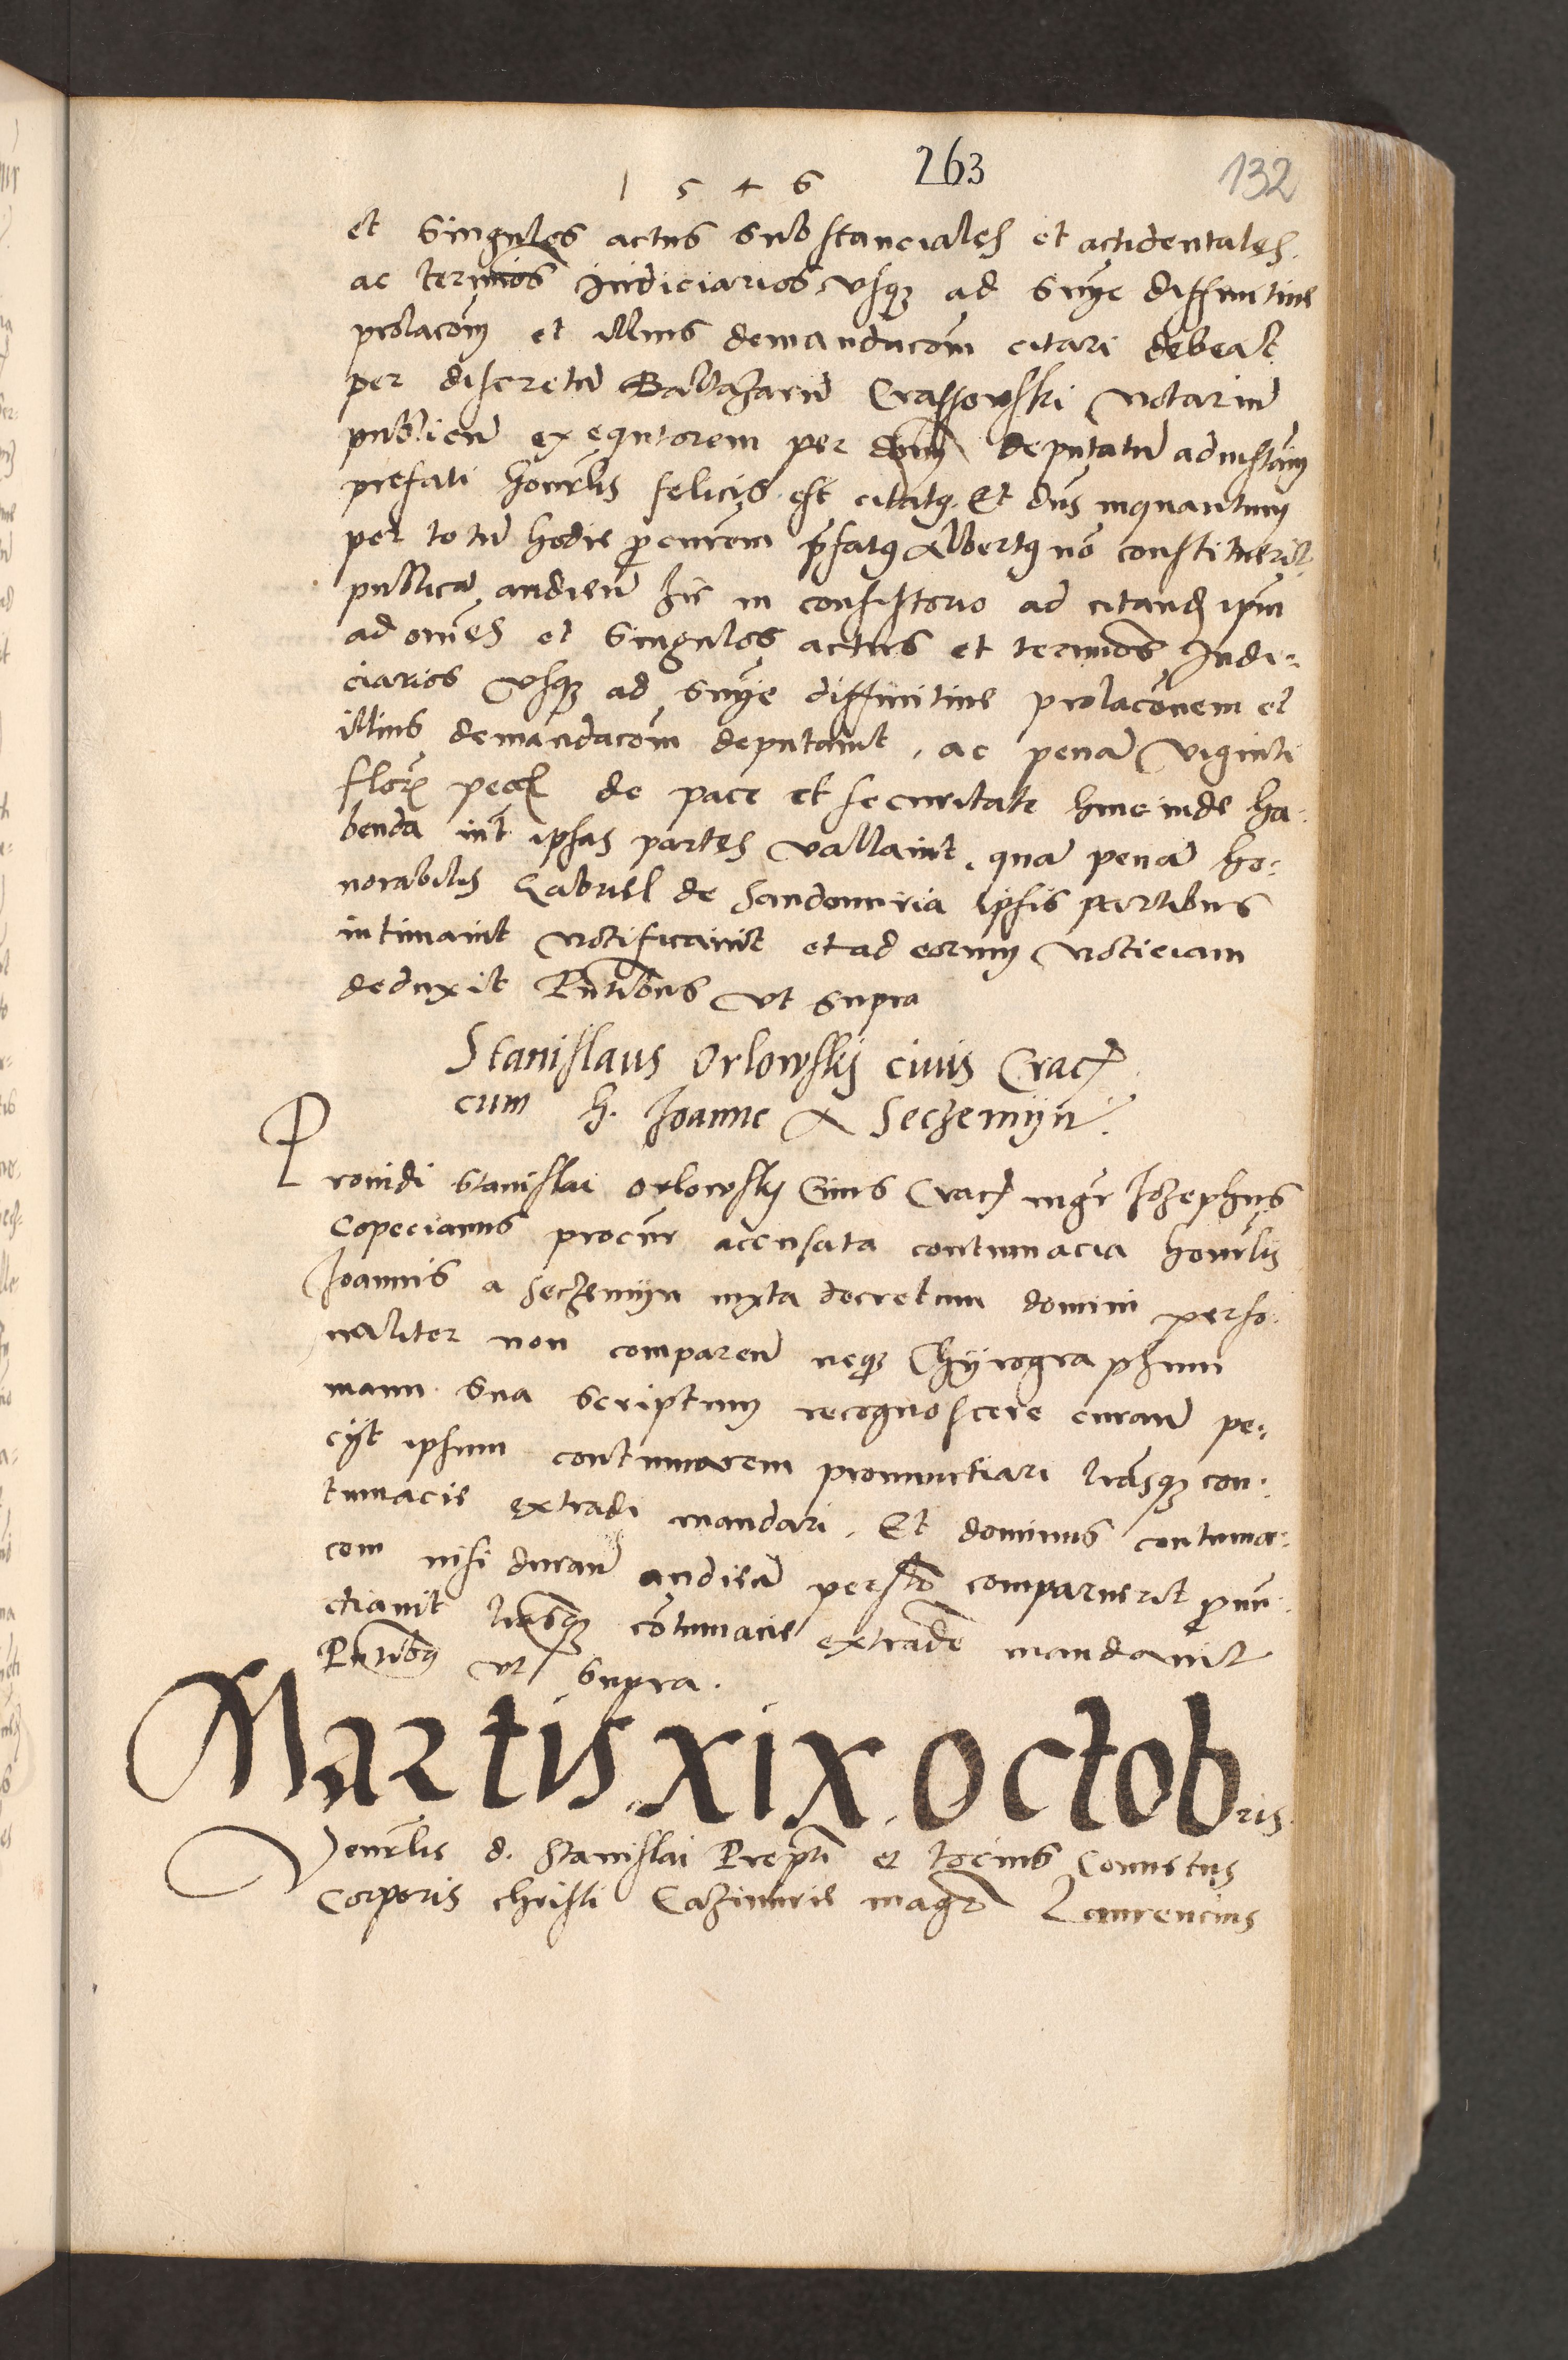 263
132
1 5 4 6
et singulos actus substanciales et actidentales
ac terminos Judiciarios usque ad sniae diffinitiue
prolacom et illius demandacom citari debeat
per discretu Baltazaru Crassowski Notariu
publicu exequtorem per dnm deputatu ad instam
prefati honrlis felicis est citatq. Et dns inquantum
per totu hodie procurem pfatq Albertq no constituerit
publica audien hic in consistorio ad citand ipm
ad omes et singulos actus et terminos Judi-
ciarios usque ad sniae diffinitiue prolaconem et
illius demandacom deputauit, ac pena viginti
flor pecc de pace et securitate hincinde ha-
benda int ipsas partes vallauit, qua pena ho-
norabilis Gabriel de Sandomiria ipsis partibus
intimauit notificauit et ad eorum noticiam
deduxit Pntibus vt supra
Stanislaus Orlowskij ciuis Crac
cum h. Joanne A Seczemÿn.
Prouidi Stanislai Orlowskij Ciuis Crac mgr Jozephus
Copecianus procur accusata contumacia honrlis
Joannis a Seczemÿn iuxta decretum domini perso-
naliter non comparen neque Chÿrographum
manu sua scriptum recognoscere curan pe-
cÿt ipsum contumacem pronunctiari lrasque con-
tumacie extradi mandari. Et dominus contuma-
cem nisi duran audien persolr comparuerit pnun-
ctiauit lrasque cotumacie extrade mandauit
Pntibq vt supra.
Martis. xix. Octobris.
Venrlis d. Stanislai Prepti et tocius Conuetus
Corporis christi Cazimirie magr Laurencius